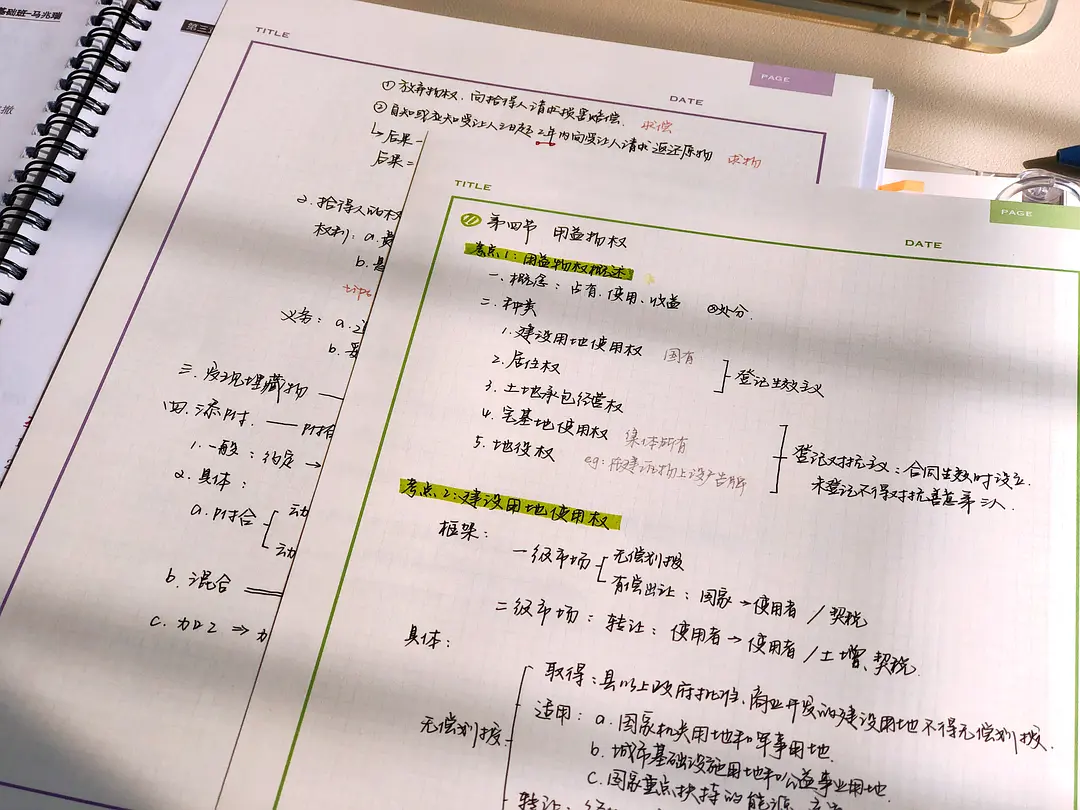 基础班-马兆瑞
第三
撤
TITLE
PAGE
DATE
① 放弃物权、向拾得人请求损害赔偿、 求偿
② 自知或应知受让人之日起2年内向受让人请求返还原物 求物
↳后果一
后果二
2. 拾得人的权
权利: a.
b.
tips
义务: a.
b.
三. 发现埋藏物 —
四. 添附. — 附
1. 一般: 约定 →
2. 具体:
a. 附合 动
动
b. 混合 =
c. 加工 ⇒
TITLE
PAGE
DATE
第四节 用益物权
考点1: 用益物权概述
一、概念: 占有、使用、收益 处分.
二、种类
1. 建设用地使用权 国有
2. 居住权
登记生效主义
3. 土地承包经营权
4. 宅基地使用权 集体所有
5. 地役权 eg: 在建筑物上设广告牌
登记对抗主义: 合同生效时设立.
未登记不得对抗善意第三人.
考点2: 建设用地使用权
框架:
一级市场 无偿划拨
有偿出让: 国家→使用者 / 契税
二级市场: 转让: 使用者→使用者 / 土增、契税.
具体:
无偿划拨
取得: 县以上政府批准, 商业开发的建设用地不得无偿划拨.
适用: a. 国家机关用地和军事用地.
b. 城市基础设施用地和公益事业用地.
c. 国家重点扶持的能源、
转让: